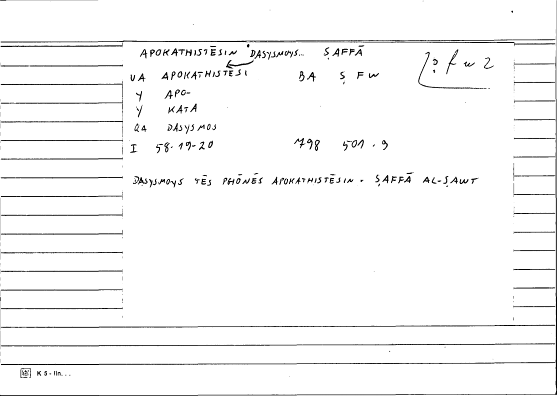 APOKATHISTĒSIN DASYSMOYS... ṢAFFĀ
ṣ f w 2
UA APOKATHISTĒSI BA Ṣ F W
Y APO-
Y KATA
QA DASYSMOS
I 58.19-20 798 501.9
DASYSMOYS TĒS PHŌNĒS APOKATHISTĒSIN. ṢAFFĀ AL-ṢAWT
K 5 - lin. . .